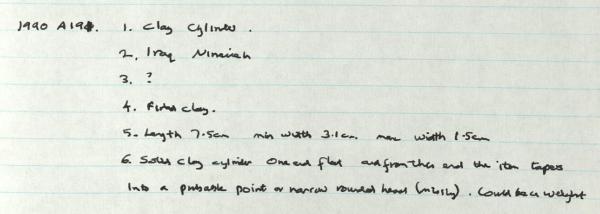 1990 A194. 1. Clay Cylinder.
2. Iraq Nineveh
3. ?
4. Fired clay.
5. Length 7.5cm min width 3.1cm max width 1.5cm
6. Solid clay cylinder One end flat and from this end the item tapers
into a probable point or narrow rounded head (missing). Could be a weight